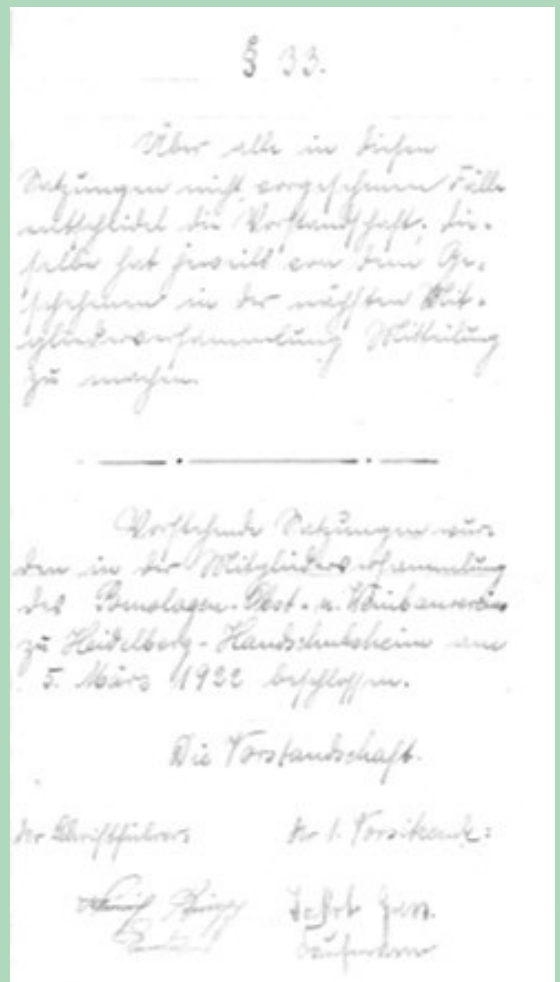 § 33.
Über alle in diesen
Satzungen nicht vorgesehenen Fälle
entscheidet die Vorstandschaft, die-
selbe hat jeweils von dem Ge-
schehenen in der nächsten Mit-
gliederversammlung Mitteilung
zu machen.
Vorstehende Satzungen wur-
den in der Mitgliederversammlung
des Pomologen-Obst- u. Weinbauvereins
zu Heidelberg-Handschuhsheim am
5. März 1922 beschlossen.
Die Vorstandschaft.
der Schriftführer: der 1. Vorsitzende: